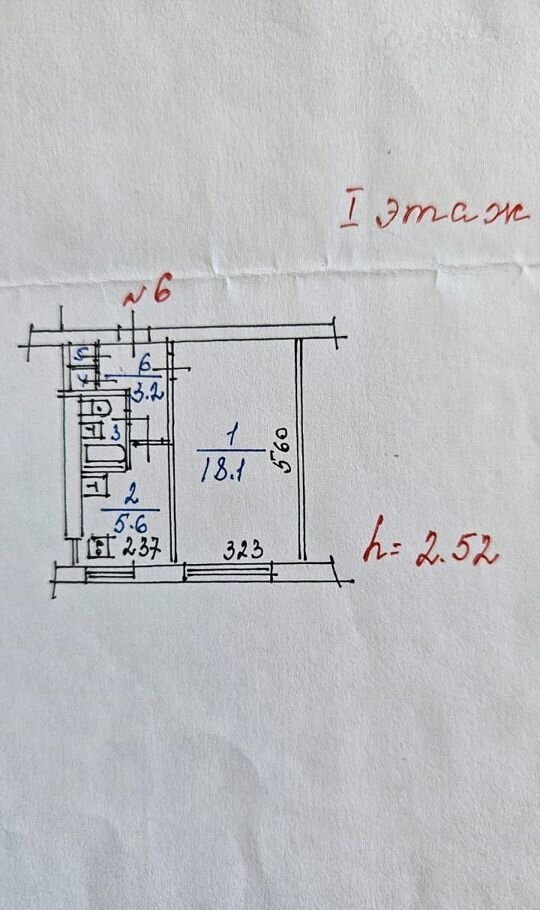 I этаж
№6
5
6
3.2
4
3
1
18.1
560
2
5.6
237
323
h= 2.52